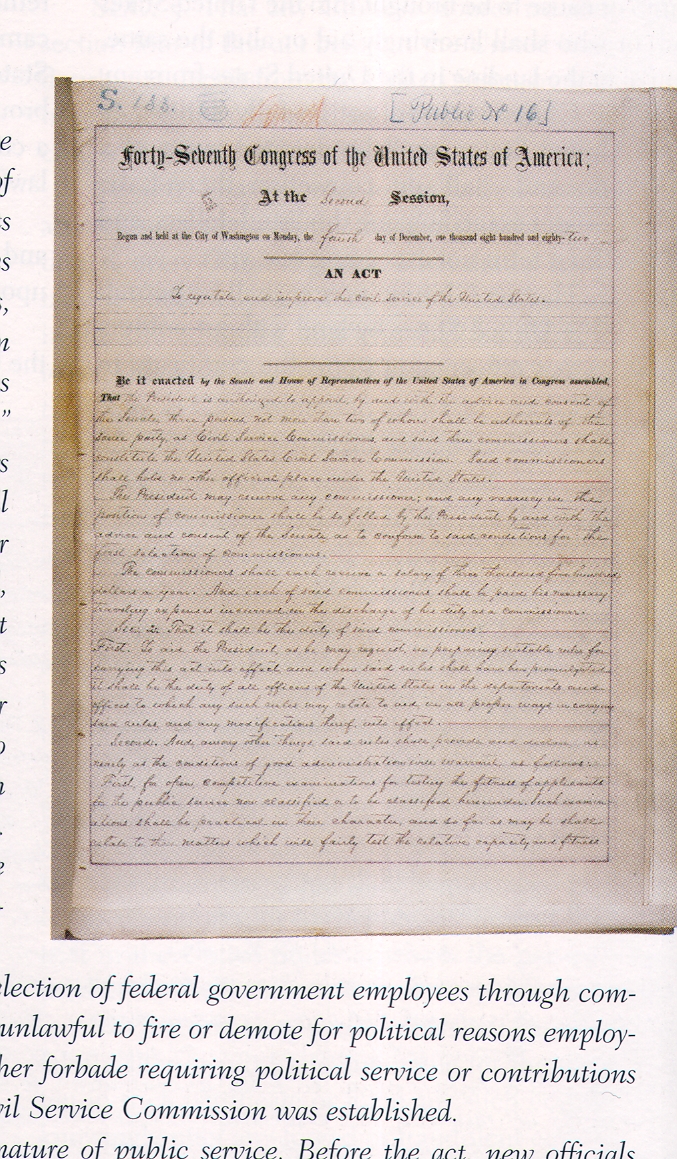 S. 133.
[Public No 16]
Forty-Seventh Congress of the United States of America;
At the Second Session,
Begun and held at the City of Washington on Monday, the fourth day of December, one thousand eight hundred and eighty-two
AN ACT
To regulate and improve the civil service of the United States.
Be it enacted by the Senate and House of Representatives of the United States of America in Congress assembled,
That the President is authorized to appoint, by and with the advice and consent of
the Senate, three persons, not more than two of whom shall be adherents of the
same party, as Civil Service Commissioners, and said three commissioners shall
constitute the United States Civil Service Commission. Said commissioners
shall hold no other official place under the United States.
The President may remove any commissioner; and any vacancy in the
position of commissioner shall be so filled by the President, by and with the
advice and consent of the Senate, as to conform to said conditions for the
first selection of commissioners.
The commissioners shall each receive a salary of three thousand five hundred
dollars a year. And each of said commissioners shall be paid his necessary
traveling expenses incurred in the discharge of his duty as a commissioner.
Sec. 2. That it shall be the duty of said commissioners:
First. To aid the President, as he may request, in preparing suitable rules for
carrying this act into effect, and when said rules shall have been promulgated
it shall be the duty of all officers of the United States in the departments and
offices to which any such rules may relate to aid, in all proper ways, in carrying
said rules, and any modifications thereof, into effect.
Second. And, among other things, said rules shall provide and declare, as
nearly as the conditions of good administration will warrant, as follows:
First, for open, competitive examinations for testing the fitness of applicants
for the public service now classified or to be classified hereunder. Such examin-
ations shall be practical in their character, and so far as may be shall
relate to those matters which will fairly test the relative capacity and fitness
election of federal government employees through com-
unlawful to fire or demote for political reasons employ-
her forbade requiring political service or contributions
vil Service Commission was established.
nature of public service. Before the act, new officials